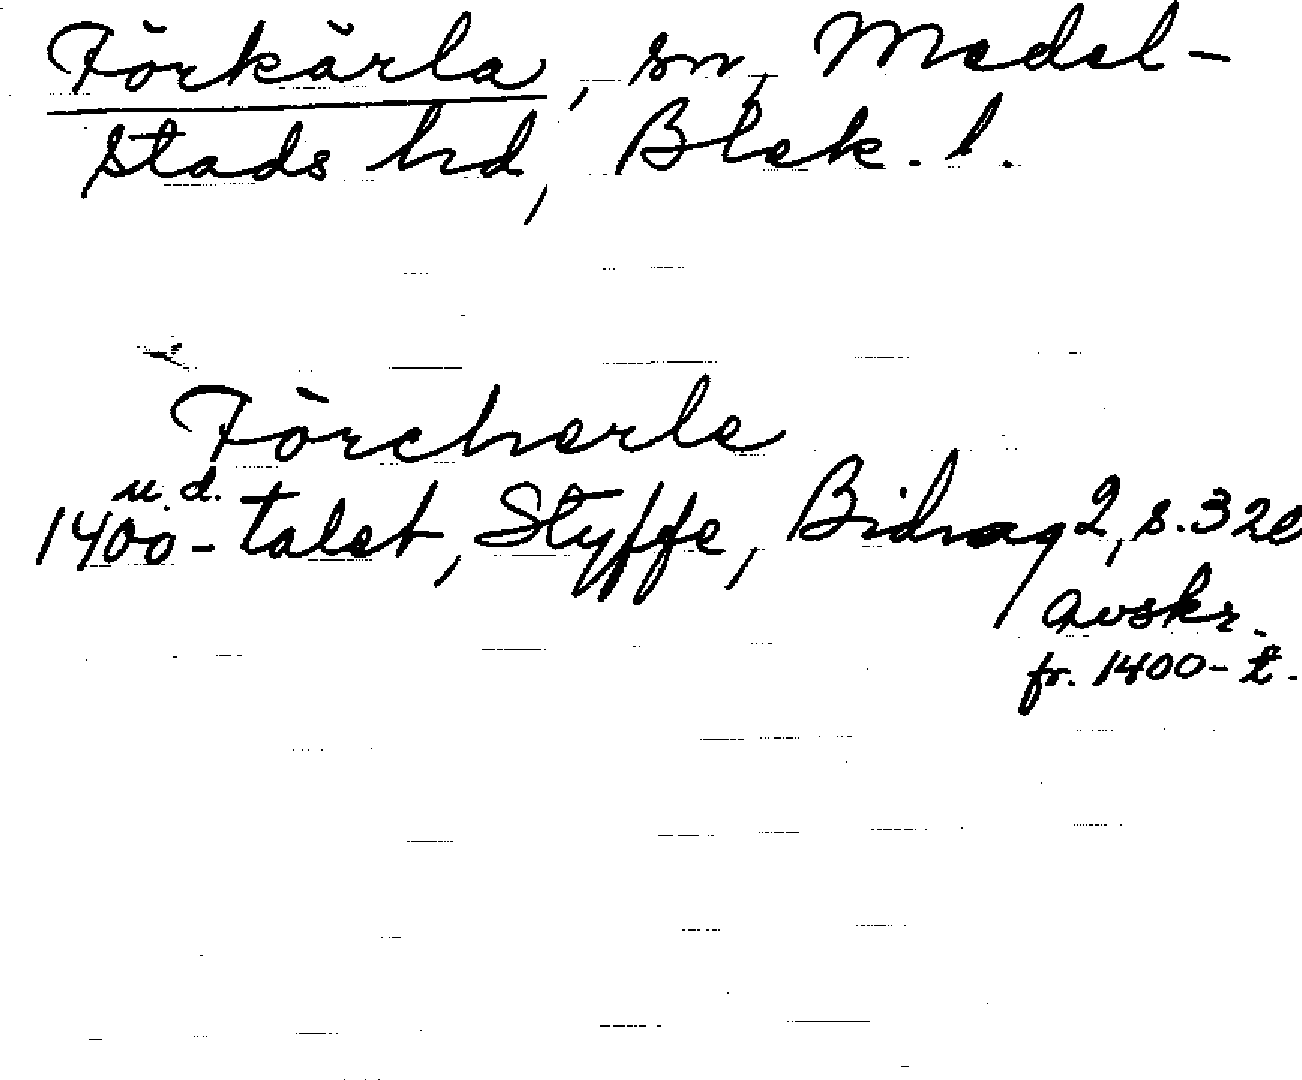 Förkärla, sn, Medel-
stads hd, Blek. l.
Förcherle
u.d.
1400-talet, Styffe, Bidrag 2, s. 320
avskr.
fr. 1400-t.